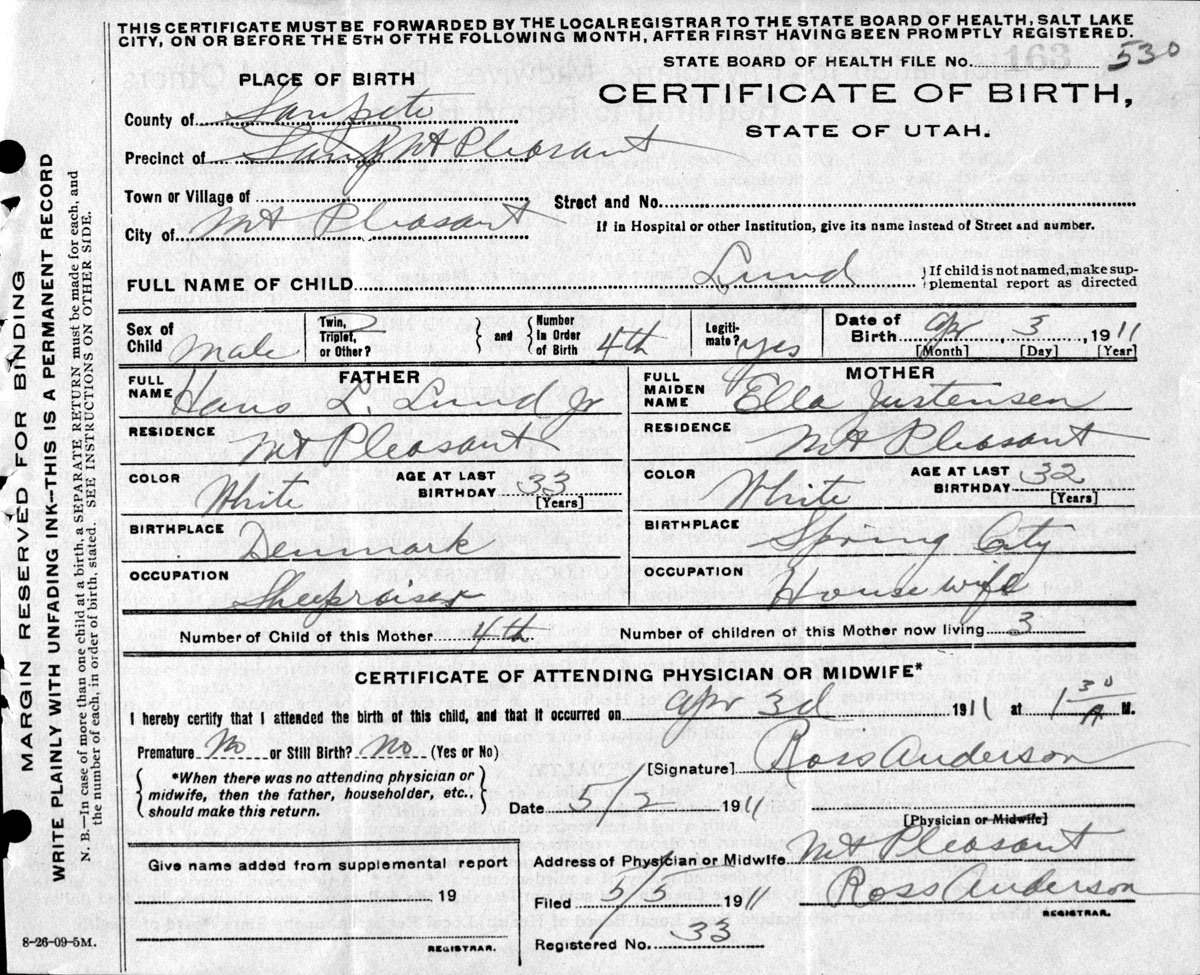 THIS CERTIFICATE MUST BE FORWARDED BY THE LOCAL REGISTRAR TO THE STATE BOARD OF HEALTH, SALT LAKE
CITY, ON OR BEFORE THE 5TH OF THE FOLLOWING MONTH, AFTER FIRST HAVING BEEN PROMPTLY REGISTERED.
STATE BOARD OF HEALTH FILE No. 163 530
PLACE OF BIRTH
CERTIFICATE OF BIRTH,
STATE OF UTAH.
County of Sanpete
Precinct of Mt Pleasant
Town or Village of
Street and No.
City of Mt Pleasant
If in Hospital or other Institution, give its name instead of Street and number.
FULL NAME OF CHILD Lund } If child is not named, make sup-
plemental report as directed
Sex of Child Male
Twin, Triplet, or Other? } and { Number In Order of Birth 4th
Legiti-mate? yes
Date of Birth Apr 3, 1911
[Month] [Day] [Year]
FATHER
MOTHER
FULL NAME Hans L. Lund Jr
FULL MAIDEN NAME Ella Justensen
RESIDENCE Mt Pleasant
RESIDENCE Mt Pleasant
COLOR White AGE AT LAST BIRTHDAY 33 [Years]
COLOR White AGE AT LAST BIRTHDAY 32 [Years]
BIRTHPLACE Denmark
BIRTHPLACE Spring City
OCCUPATION Sheepraiser
OCCUPATION Housewife
Number of Child of this Mother 4th Number of children of this Mother now living 3
CERTIFICATE OF ATTENDING PHYSICIAN OR MIDWIFE*
I hereby certify that I attended the birth of this child, and that it occurred on Apr 3d 1911 at 1 30 A M.
Premature No or Still Birth? No (Yes or No)
*When there was no attending physician or
midwife, then the father, householder, etc.,
should make this return.
[Signature] Ross Anderson
Date 5/2 1911
[Physician or Midwife]
Give name added from supplemental report
19
REGISTRAR.
Address of Physician or Midwife Mt Pleasant
Filed 5/5 1911 Ross Anderson
REGISTRAR.
Registered No. 33
8-26-09-5M.
MARGIN RESERVED FOR BINDING
WRITE PLAINLY WITH UNFADING INK--THIS IS A PERMANENT RECORD
N. B.—In case of more than one child at a birth, a SEPARATE RETURN must be made for each, and
the number of each, in order of birth, stated. SEE INSTRUCTIONS ON OTHER SIDE.